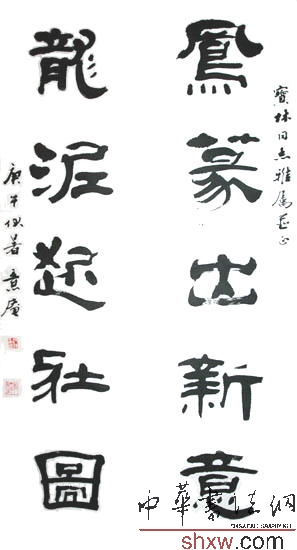 寶林同志雅屬正
鳳篆出新意
龍泥起壯圖
庚午伏暑 意庵
中華書法網
shxw.com